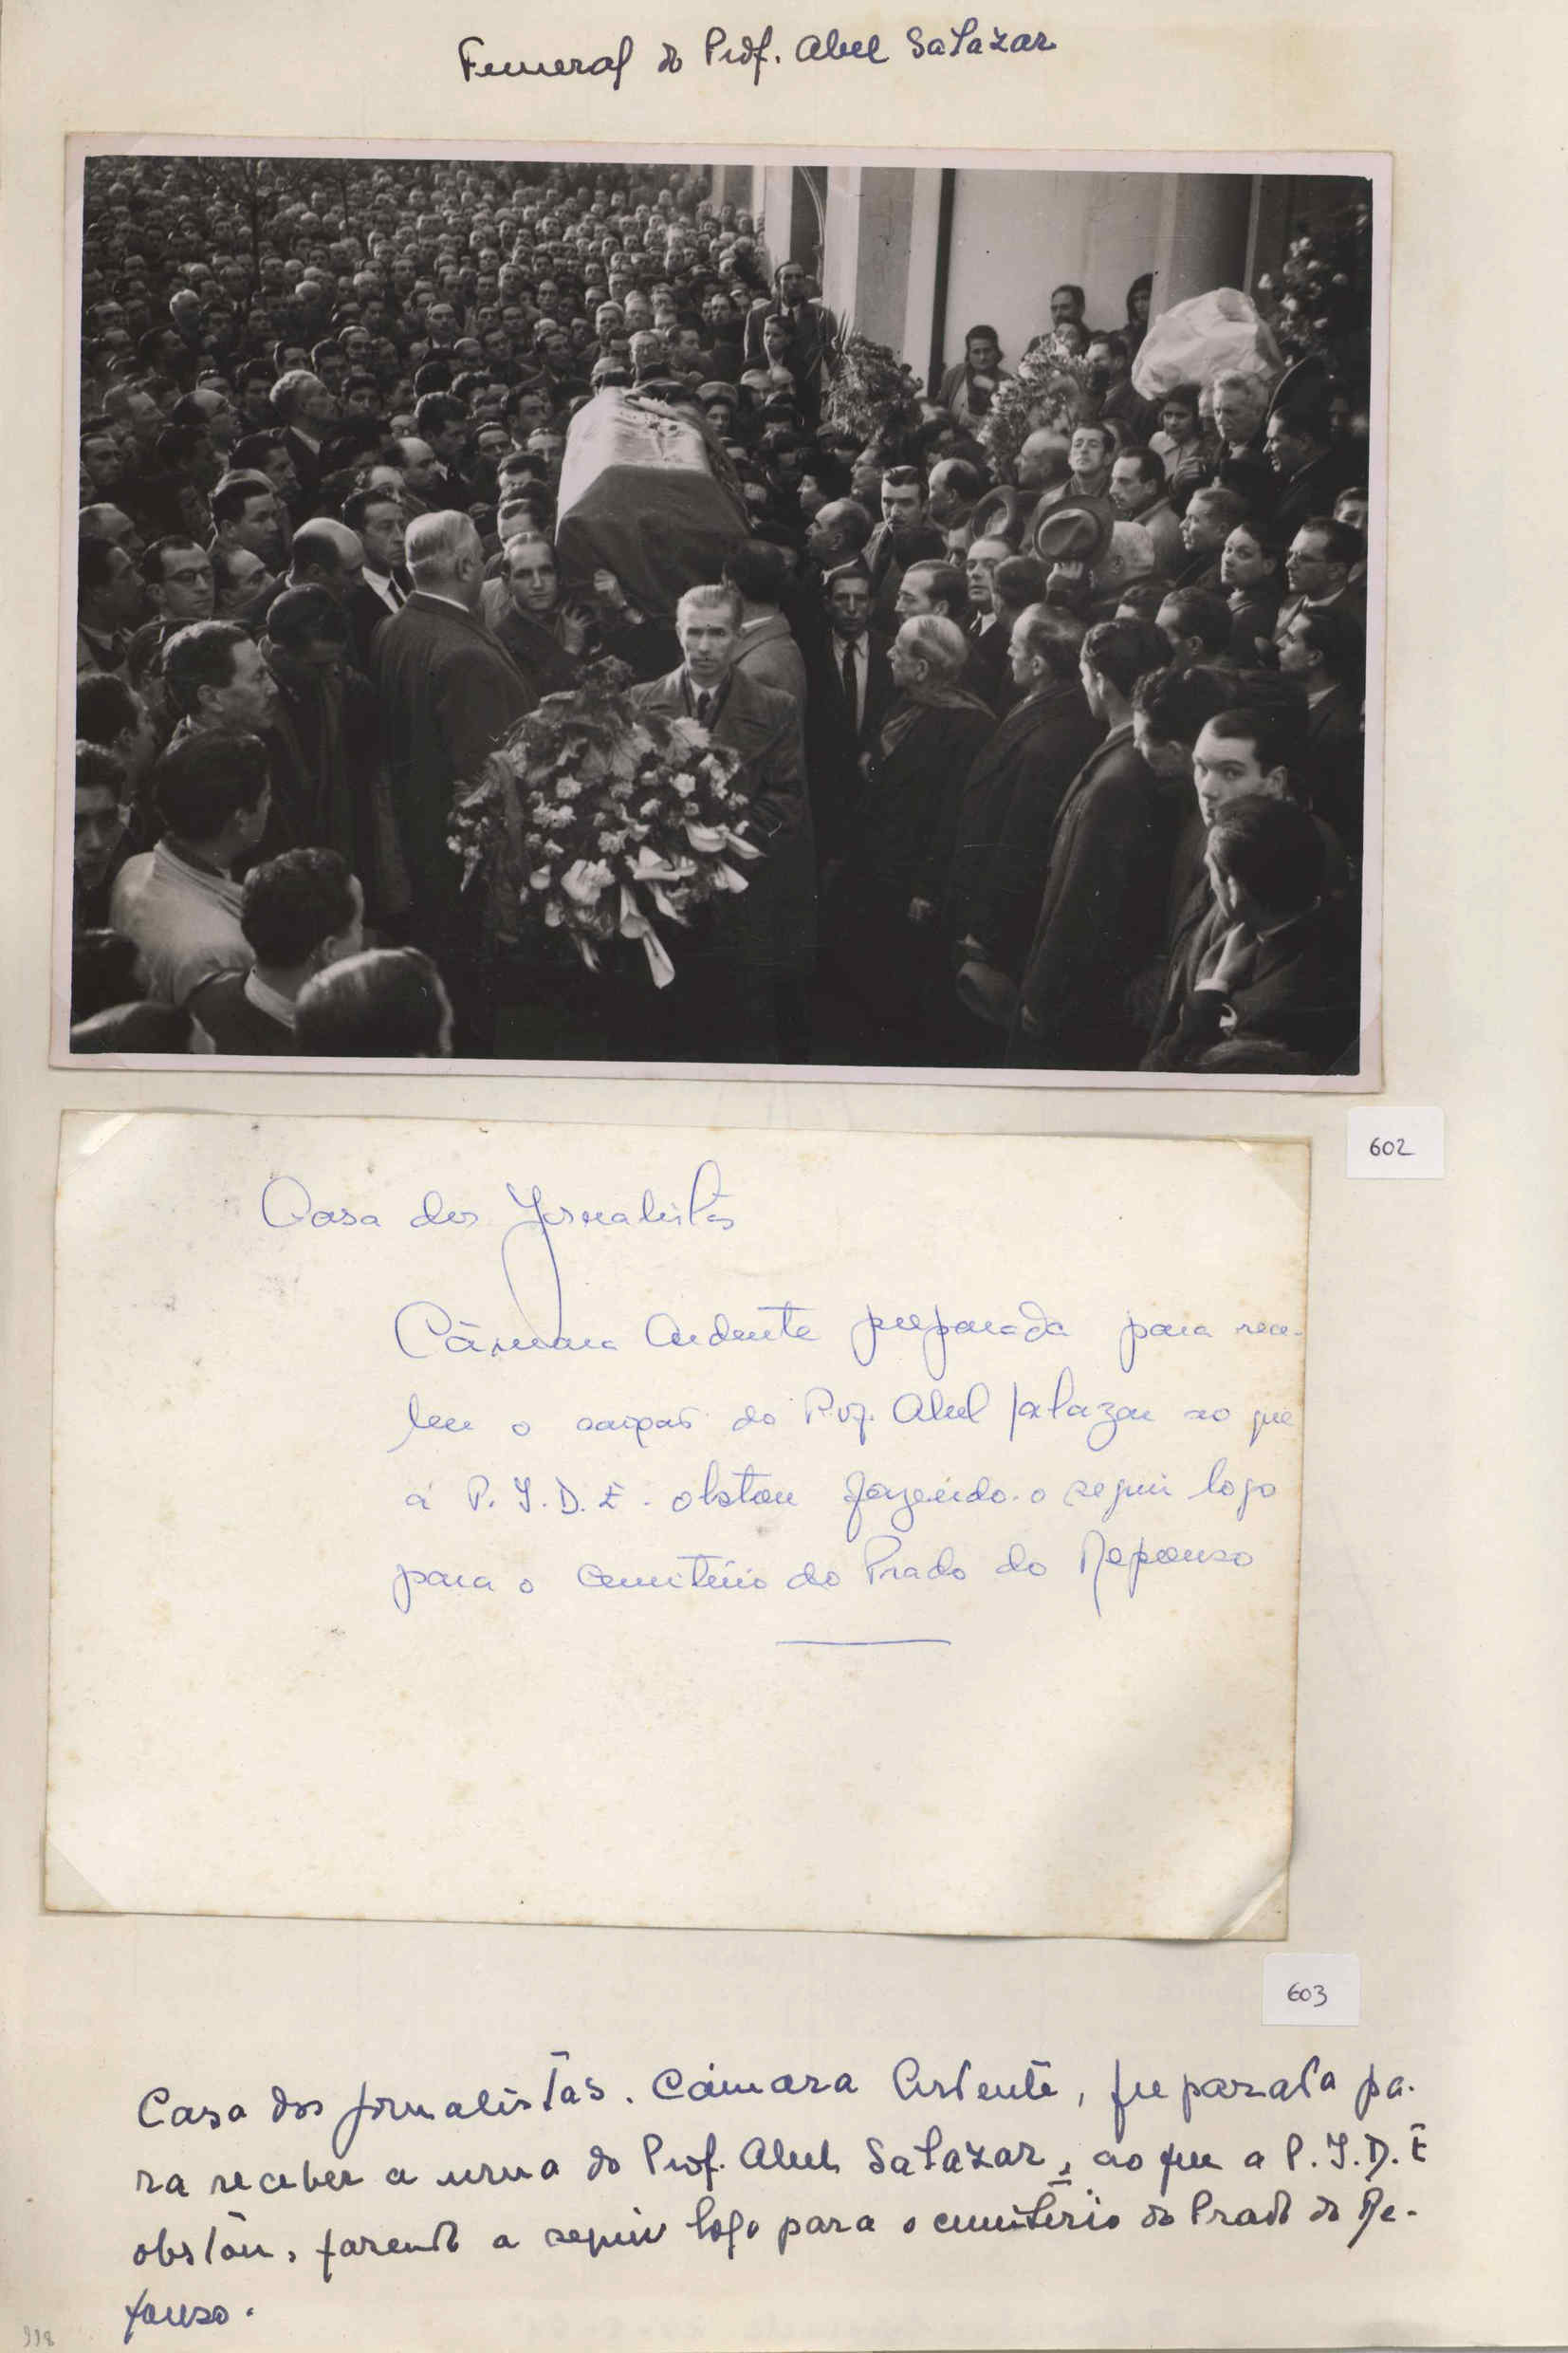 Funeral do Prof. Abel Salazar
602
Casa dos Jornalistas
Câmara Ardente preparada para rece-
ber o corpo do Prof. Abel Salazar ao que
a P.I.D.E. obstou fazendo-o seguir logo
para o cemitério do Prado do Repouso
603
Casa dos Jornalistas. Câmara Ardente, preparada pa-
ra receber a urna do Prof. Abel Salazar, ao que a P.I.D.E
obstou, fazendo a seguir logo para o cemitério do Prado do Re-
pouso.